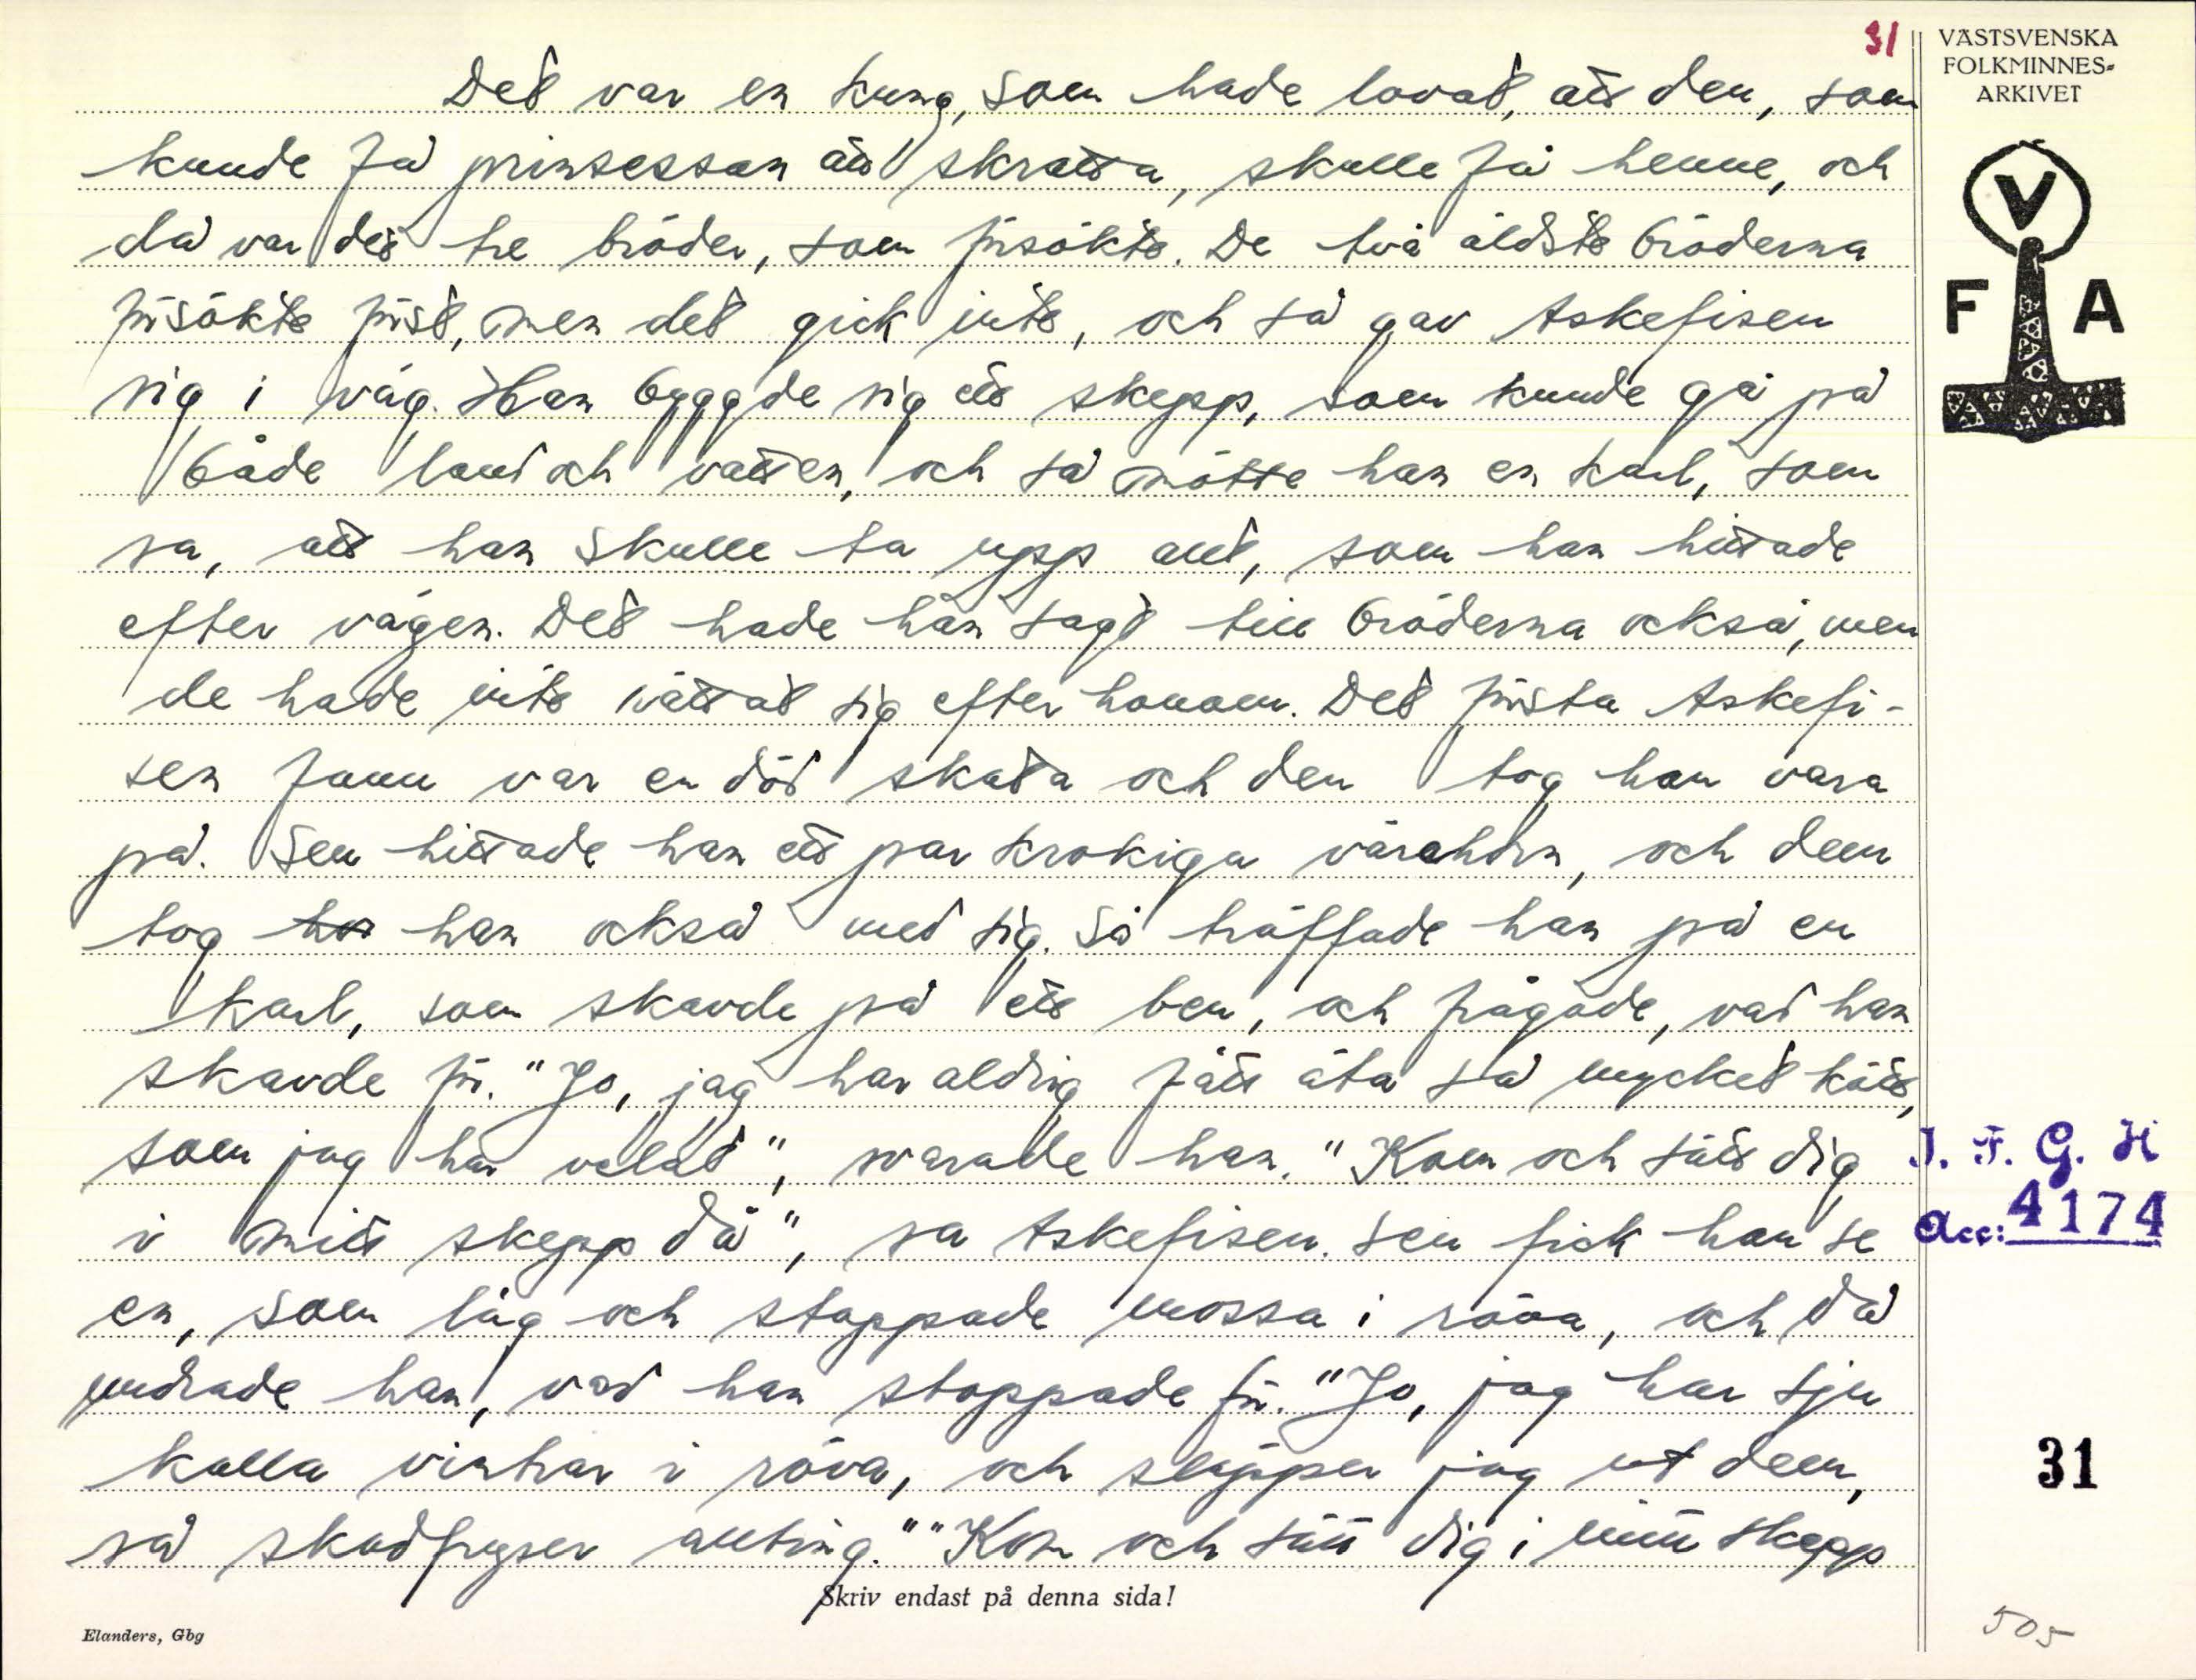 31
VÄSTSVENSKA
FOLKMINNES-
ARKIVET
V
F A
Det var en kung, som hade lovat, att den, som
kunde få prinsessan att skratta, skulle få henne, och
då var det tre bröder, som försökte. De två äldste bröderna
försökte först, men det gick inte, och så gav Askefisen
sig i väg. Han byggde sig ett skepp, som kunde gå på
både land och vatten, och så mötte han en karl, som
sa, att han skulle ta upp allt, som han hittade
efter vägen. Det hade han sagt till bröderna också, men
de hade inte rättat sig efter honom. Det första Askefi-
sen fann var en död skata och den tog han vara
på. Sen hittade han ett par krokiga värahorn, och dem
tog han också med sig. Så träffade han på en
karl, som skavde på ett ben, och frågade, vad han
skavde för. "Jo, jag har aldrig fått äta så mycket kött,
som jag har velat", svarade han. "Kom och sätt dig
i mitt skepp då", sa Askefisen. Sen fick han se
en, som låg och stoppade mossa i röva, och då
undrade han, vad han stoppade för. "Jo, jag har sju
kalla vintrar i röva, och släpper jag ut dem,
så skadfryser allting." "Kom och sätt dig i mitt skepp
I. F. G. H
Acc: 4174
31
Skriv endast på denna sida!
Elanders, Gbg
505